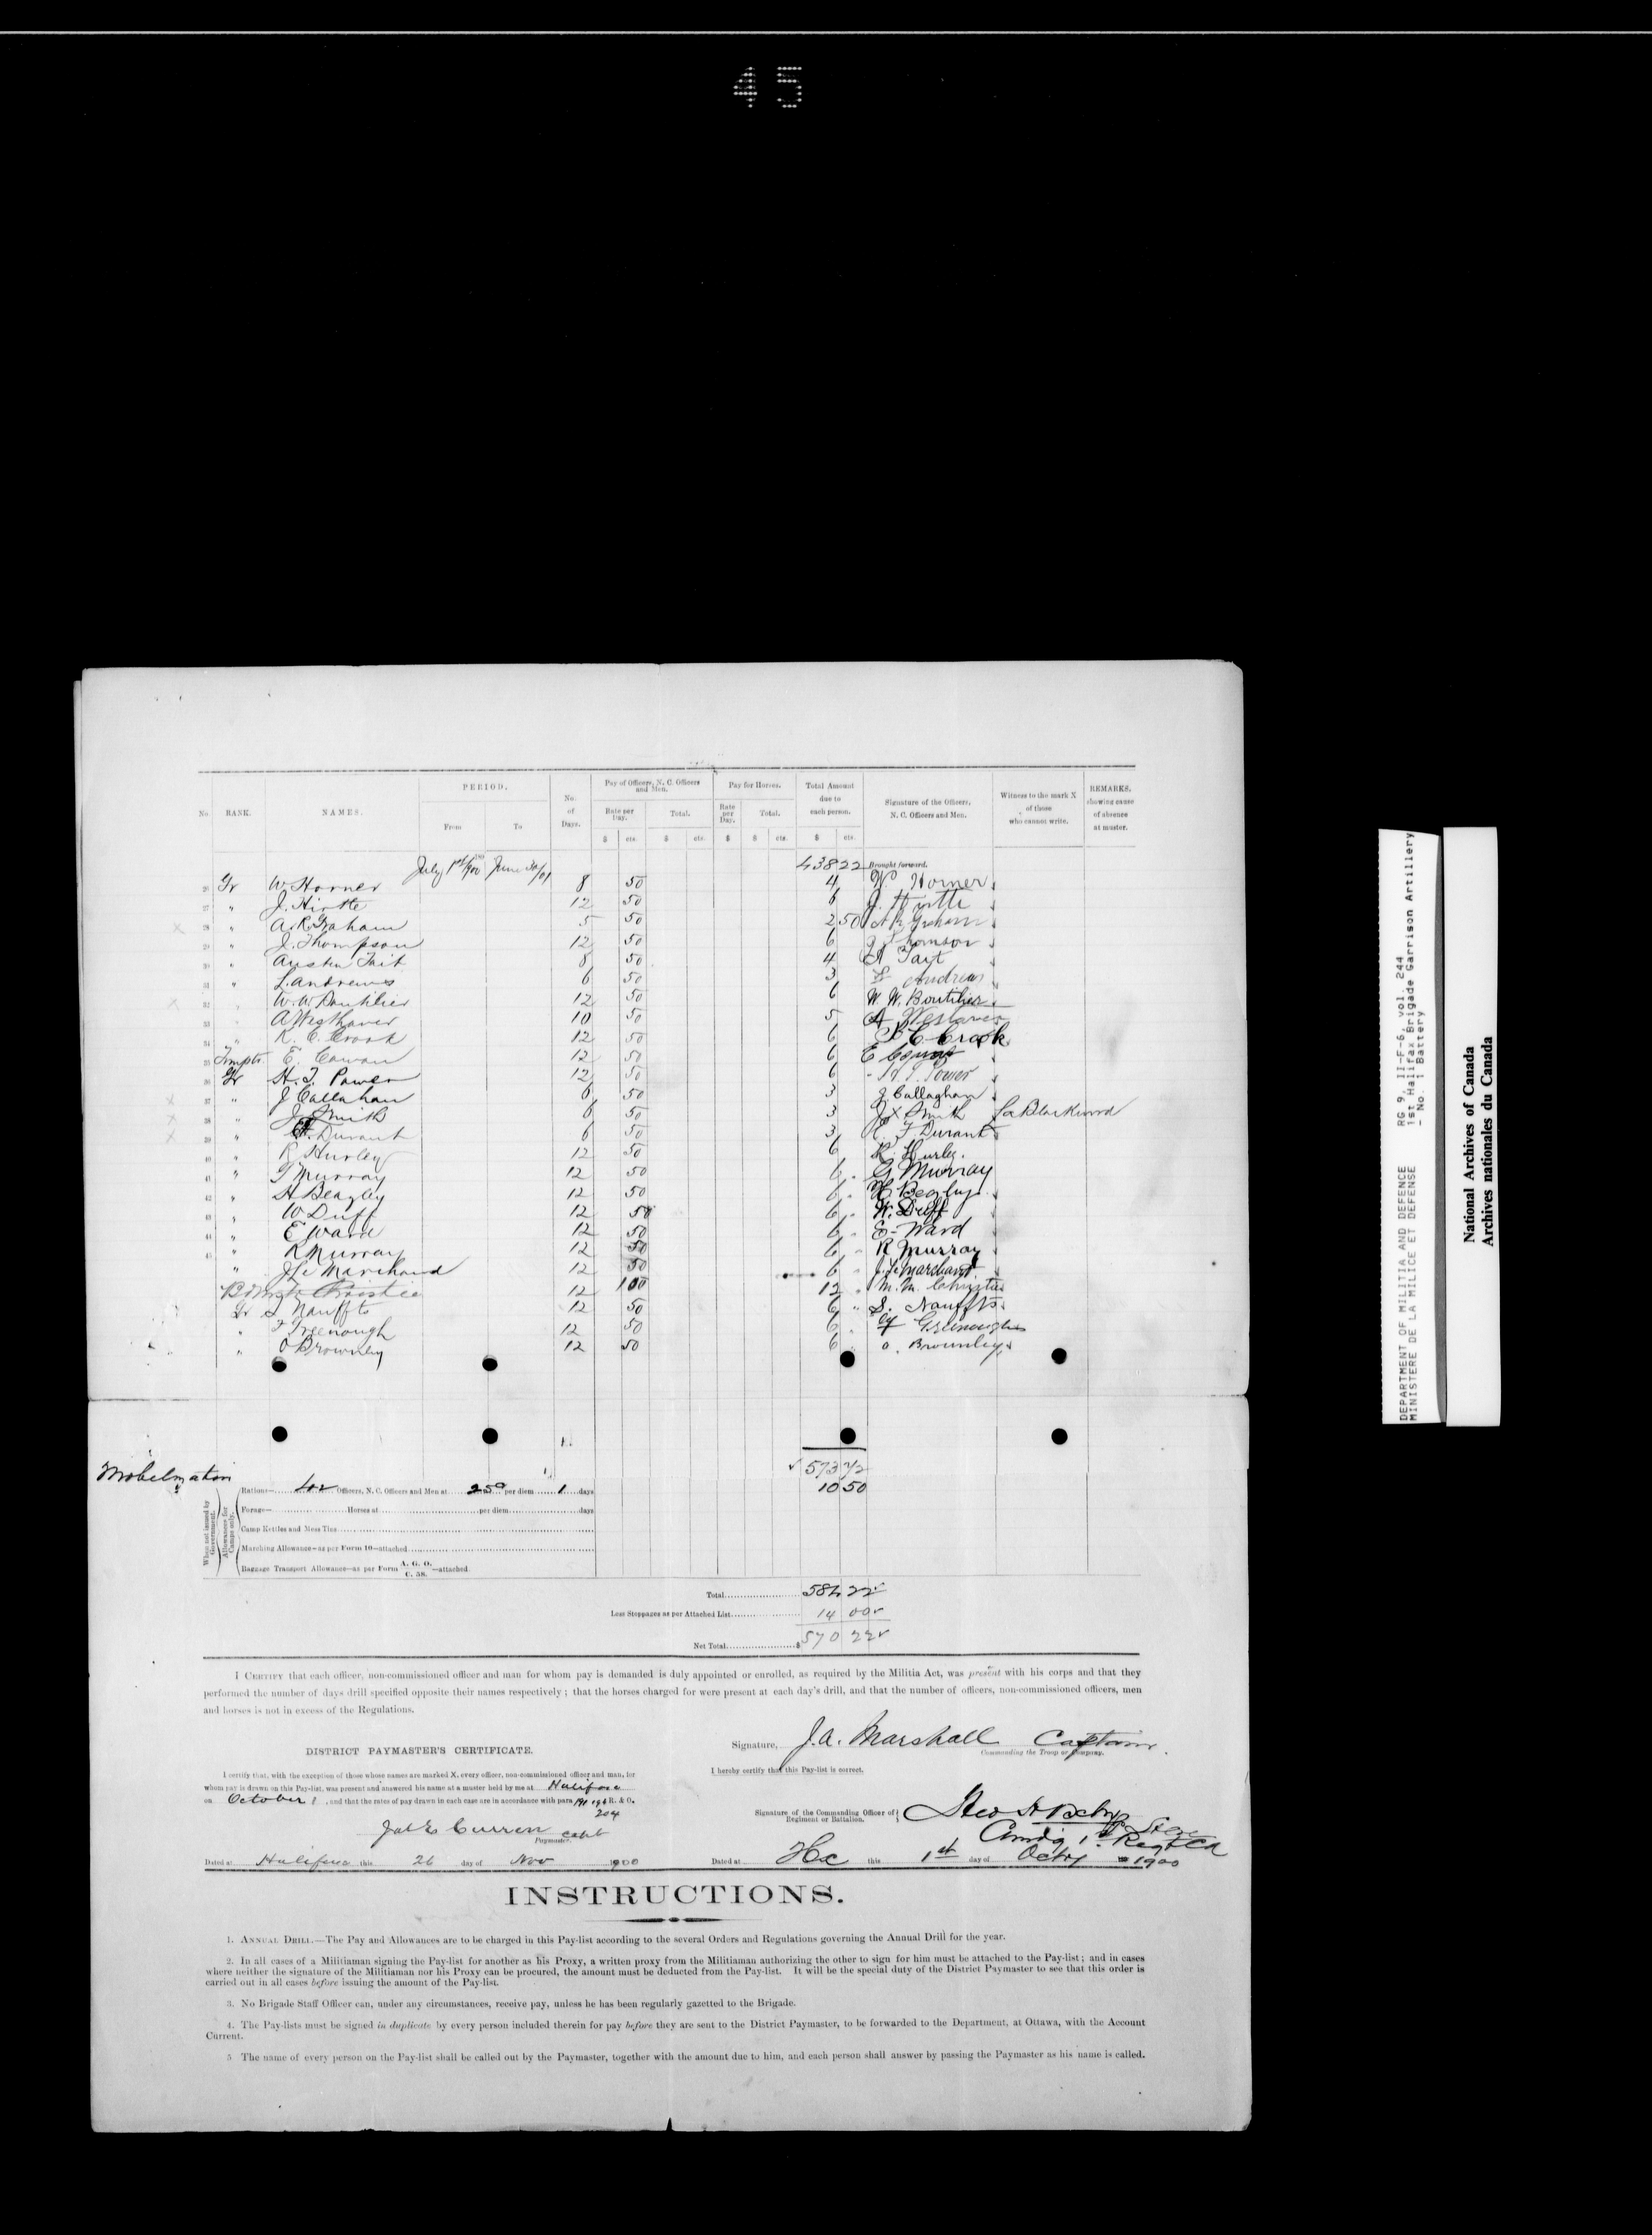 45
PERIOD.
No. RANK. NAMES. From To No. of Days. Pay of Officers, N. C. Officers and Men. Rate per Day. Total. Pay for Horses. Rate per Day. Total. Total Amount due to each person. Signature of the Officers, N. C. Officers and Men. Witness to the mark X of those who cannot write. REMARKS, showing cause of absence at muster.
$ cts. $ cts. $ $ cts. $ cts.
July 1st/900 June 30/01 438 22 Brought forward.
26 Gr W. Horner 8 50 4 W. Horner
27 " J. Hirtle 12 50 6 J. Hirtle
28 " A. R. Graham 5 50 2 50 A R Graham
29 " J. Thompson 12 50 6 J Thomson
30 " Austin Tait 8 50 4 A Tait
31 " L. Andrews 6 50 3 Andrews
32 " W. W. Boutilier 12 50 6 W. W. Boutilier
33 " A Westhaver 10 50 5 A Westaver
34 " R. C. Crook 12 50 6 R C Crook
35 Trmptr. E. Cowan 12 50 6 E Cowan
36 Gr H. T. Power 12 50 6 H. T. Power
37 " J Callahan 6 50 3 J. Callaghan
38 " J. Smith 6 50 3 J X Smith J A Blackwood
39 " E F. Durant 6 50 3 E. F Durant
40 " R Hurley 12 50 6 R. Hurley.
41 " G Murray 12 50 6 G Murray
42 " H Beazley 12 50 6 H Beazley
43 " W Duff 12 50 6 W. Duff
44 " E Ward 12 50 6 E- Ward
45 " R Murray 12 50 6 R Murray
" J Le Marchand 12 50 6 J. Le Marchant
Christie 12 1 00 12 M. M. Christie
Gr S Nauffts 12 50 6 " S. Nauffts
" F Greenough 12 50 6 Greenough
" O Brownley 12 50 6 O. Brownley
573 72
Mobelization
When not issued by Government. Allowances for Camps only.
Rations— 42 Officers, N. C. Officers and Men at 25c per diem 1 days 10 50
Forage— Horses at per diem days
Camp Kettles and Mess Tins
Marching Allowance—as per Form 10—attached
Baggage Transport Allowance—as per Form A. G. O. C. 38. —attached.
Total 584 22
Less Stoppages as per Attached List 14 00
Net Total $ 570 22
I CERTIFY that each officer, non-commissioned officer and man for whom pay is demanded is duly appointed or enrolled, as required by the Militia Act, was present with his corps and that they
performed the number of days drill specified opposite their names respectively; that the horses charged for were present at each day's drill, and that the number of officers, non-commissioned officers, men
and horses is not in excess of the Regulations.
Signature, J. A. Marshall Captain
Commanding the Troop or Company.
DISTRICT PAYMASTER'S CERTIFICATE.
I hereby certify that this Pay-list is correct.
I certify that, with the exception of those whose names are marked X, every officer, non-commissioned officer and man, for
whom pay is drawn on this Pay-list, was present and answered his name at a muster held by me at Halifax
on October 8, and that the rates of pay drawn in each case are in accordance with para 190 196 R. & O.
204
Paymaster. Capt
Signature of the Commanding Officer of Regiment or Battalion.
Comdg 1st Regt CA
Dated at Halifax this 26 day of Nov 1900
Dated at Hx this 1st day of Octr 1900
INSTRUCTIONS.
1. ANNUAL DRILL.—The Pay and Allowances are to be charged in this Pay-list according to the several Orders and Regulations governing the Annual Drill for the year.
2. In all cases of a Militiaman signing the Pay-list for another as his Proxy, a written proxy from the Militiaman authorizing the other to sign for him must be attached to the Pay-list; and in cases
where neither the signature of the Militiaman nor his Proxy can be procured, the amount must be deducted from the Pay-list. It will be the special duty of the District Paymaster to see that this order is
carried out in all cases before issuing the amount of the Pay-list.
3. No Brigade Staff Officer can, under any circumstances, receive pay, unless he has been regularly gazetted to the Brigade.
4. The Pay-lists must be signed in duplicate by every person included therein for pay before they are sent to the District Paymaster, to be forwarded to the Department, at Ottawa, with the Account
Current.
5 The name of every person on the Pay-list shall be called out by the Paymaster, together with the amount due to him, and each person shall answer by passing the Paymaster as his name is called.
DEPARTMENT OF MILITIA AND DEFENCE RG 9, II-F-6, vol. 244
MINISTERE DE LA MILICE ET DEFENSE 1st Halifax Brigade Garrison Artillery
- No. 1 Battery
National Archives of Canada
Archives nationales du Canada